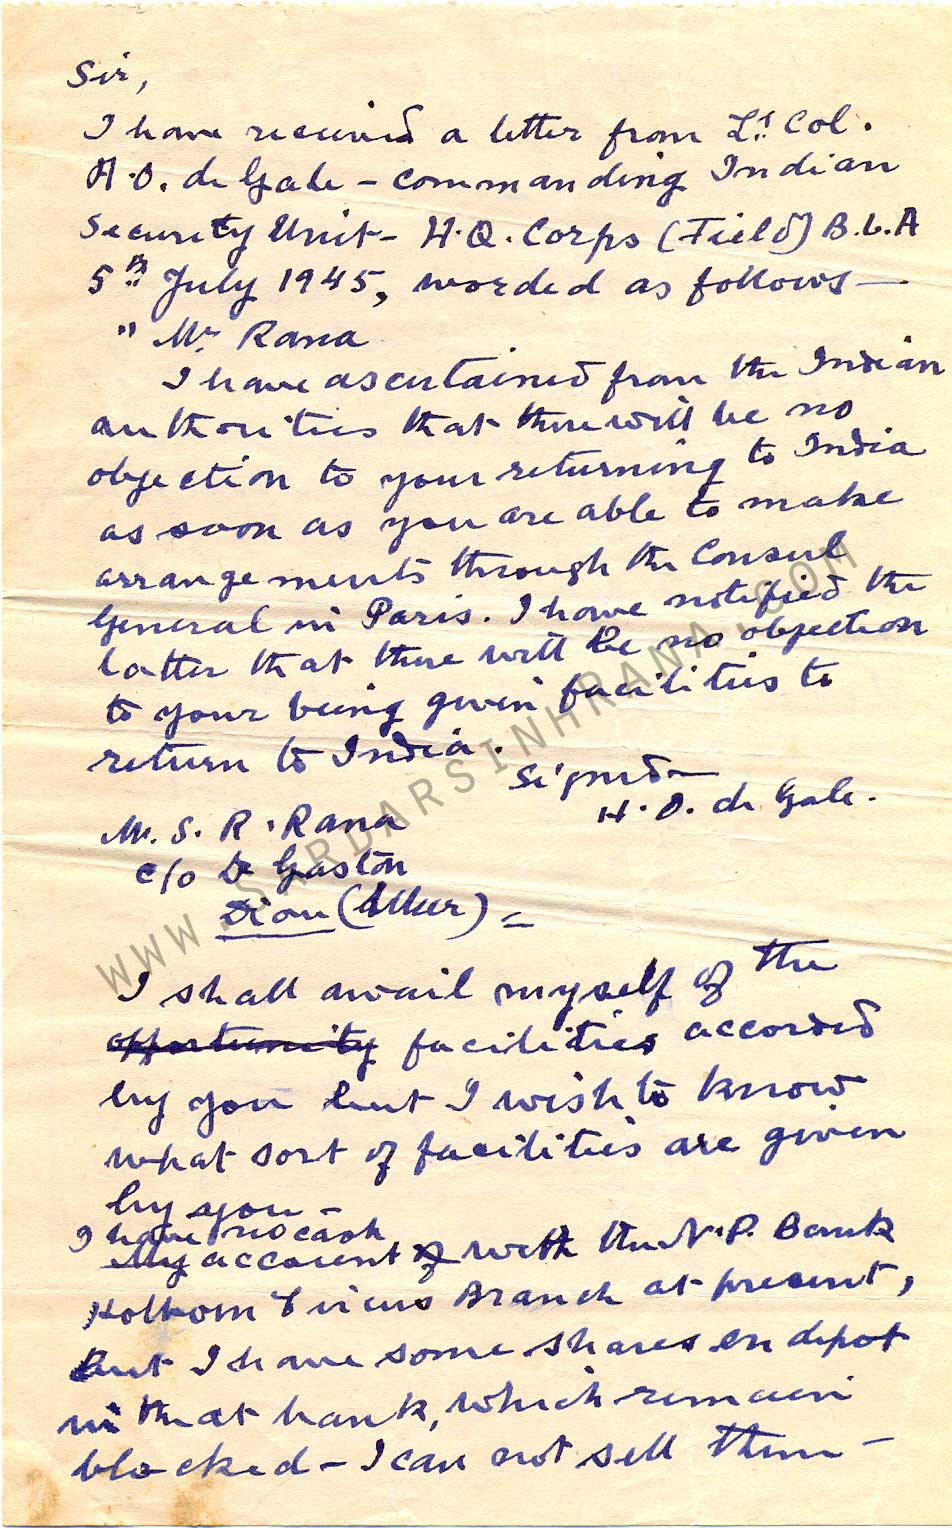 Sir,
I have received a letter from Lt. Col.
H.O. de Gale – commanding Indian
Security Unit – H.Q. Corps (Field) B.L.A
5th July 1945, worded as follows –
" Mr Rana
I have ascertained from the Indian
authorities that there will be no
objection to your returning to India
as soon as you are able to make
arrangements through the Consul
General in Paris. I have notified the
latter that there will be no objection
to your being given facilities to
return to India.
Signed –
H. O. de Gale.
Mr. S. R. Rana
c/o Dr Gaston
Diou (Allier) =
I shall avail myself of the
opportunity facilities accorded
by you but I wish to know
what sort of facilities are given
by you –
I have no cash
My account with the N.P. Bank
Holborn Circus Branch at present,
But I have some shares en depot
in that bank, which remain
blocked – I can not sell them –
WWW.SARDARSINHRANA.COM